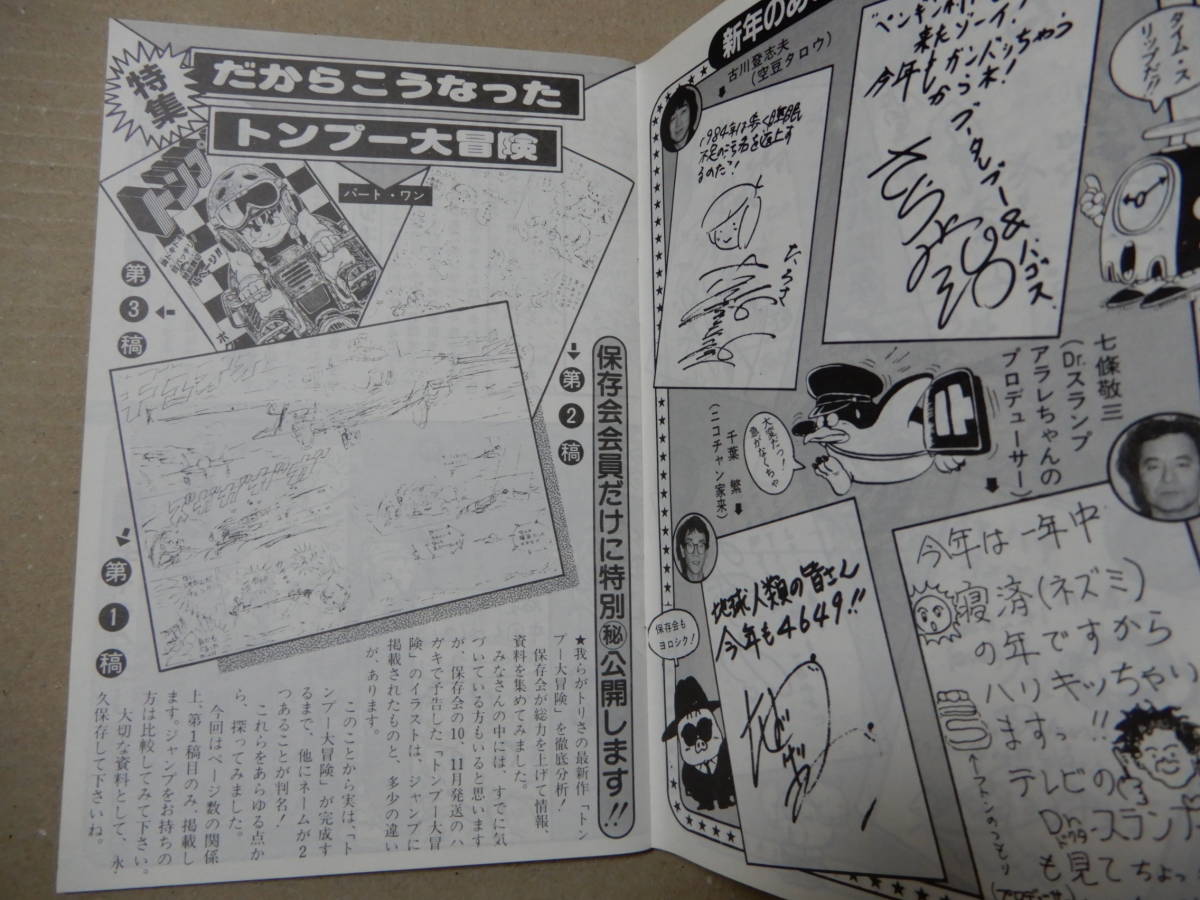 特集
だからこうなった
トンプー大冒険
パート・ワン
第3稿
第2稿
第1稿
保存会会員だけに特別㊙公開します!!
★我らがトリさの最新作「トン
プー大冒険」を徹底分析!
保存会が総力を上げて情報、
資料を集めてみました。
みなさんの中には、すでに気
づいている方もいると思います
が、保存会の10、11月発送のハ
ガキで予告した「トンプー大冒
険」のイラストは、ジャンプに
掲載されたものと、多少の違い
が、あります。
このことから実は、「ト
ンプー大冒険」が完成す
るまで、他にネームが2
つあることが判名!
これらをあらゆる点か
ら、探ってみました。
今回はページ数の関係
上、第1稿目のみ、掲載し
ます。ジャンプをお持ちの
方は比較してみて下さい。
大切な資料として、永
久保存して下さいね。
新年の
古川登志夫
(空豆タロウ)
1984年は歩く睡眠
不足の汚名を返上す
るのだ?!
来たゾーイ!
今年もガンバッちゃう
からネ!
ブータレブー&
バゴス
タイム・ス
リップだ!!
七條敬三
(Dr.スランプ
アラレちゃんの
プロデューサー)
大変だっ!
急がなくちゃ
千葉 繁
(ニコチャン家来)
地球人類の皆さん
今年も4649!!
保存会も
ヨロシク!
今年は一年中
寝済(ネズミ)
の年ですから
ハリキッちゃい
ますっ!!
テレビの
Dr.スランプ
ドクター
も見てちょっ